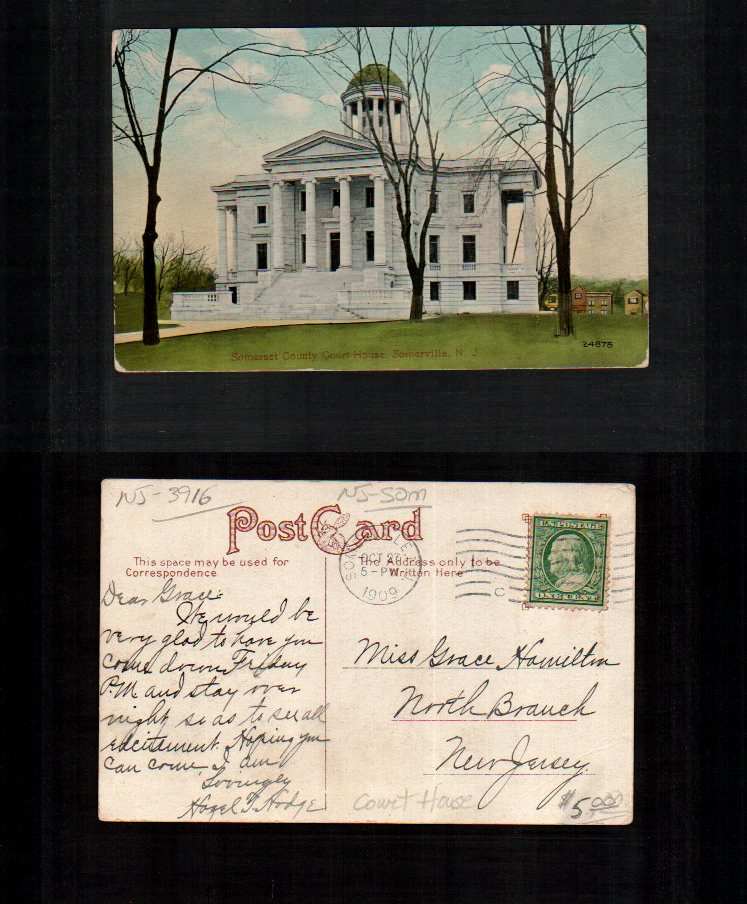 24878
Somerset County Court House, Somerville, N. J.
NJ-3916
NJ-SOM
Post Card
This space may be used for
Correspondence
The Address only to be
Written Here
OCT 27
5-PM
1909
C
U.S. POSTAGE
ONE CENT
Dear Grace:
We would be
very glad to have you
come down Friday
P.M. and stay over
night so as to see all
excitement. Hoping you
can come, I am
Lovingly
Hazel T. Hodge
Miss Grace Hamilton
North Branch
New Jersey
Court House
$5.00